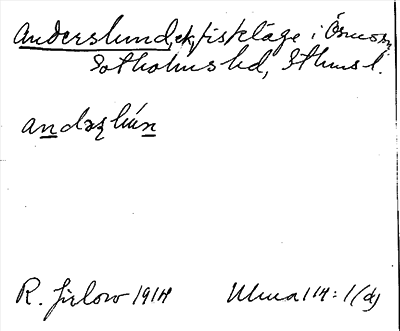 Anderslund, ek, fiskeläge i Ösmo sn
Sotholms hd, Sthms l.
andəʂlún
R. Jirlow 1914 Ulma 114:1(d)